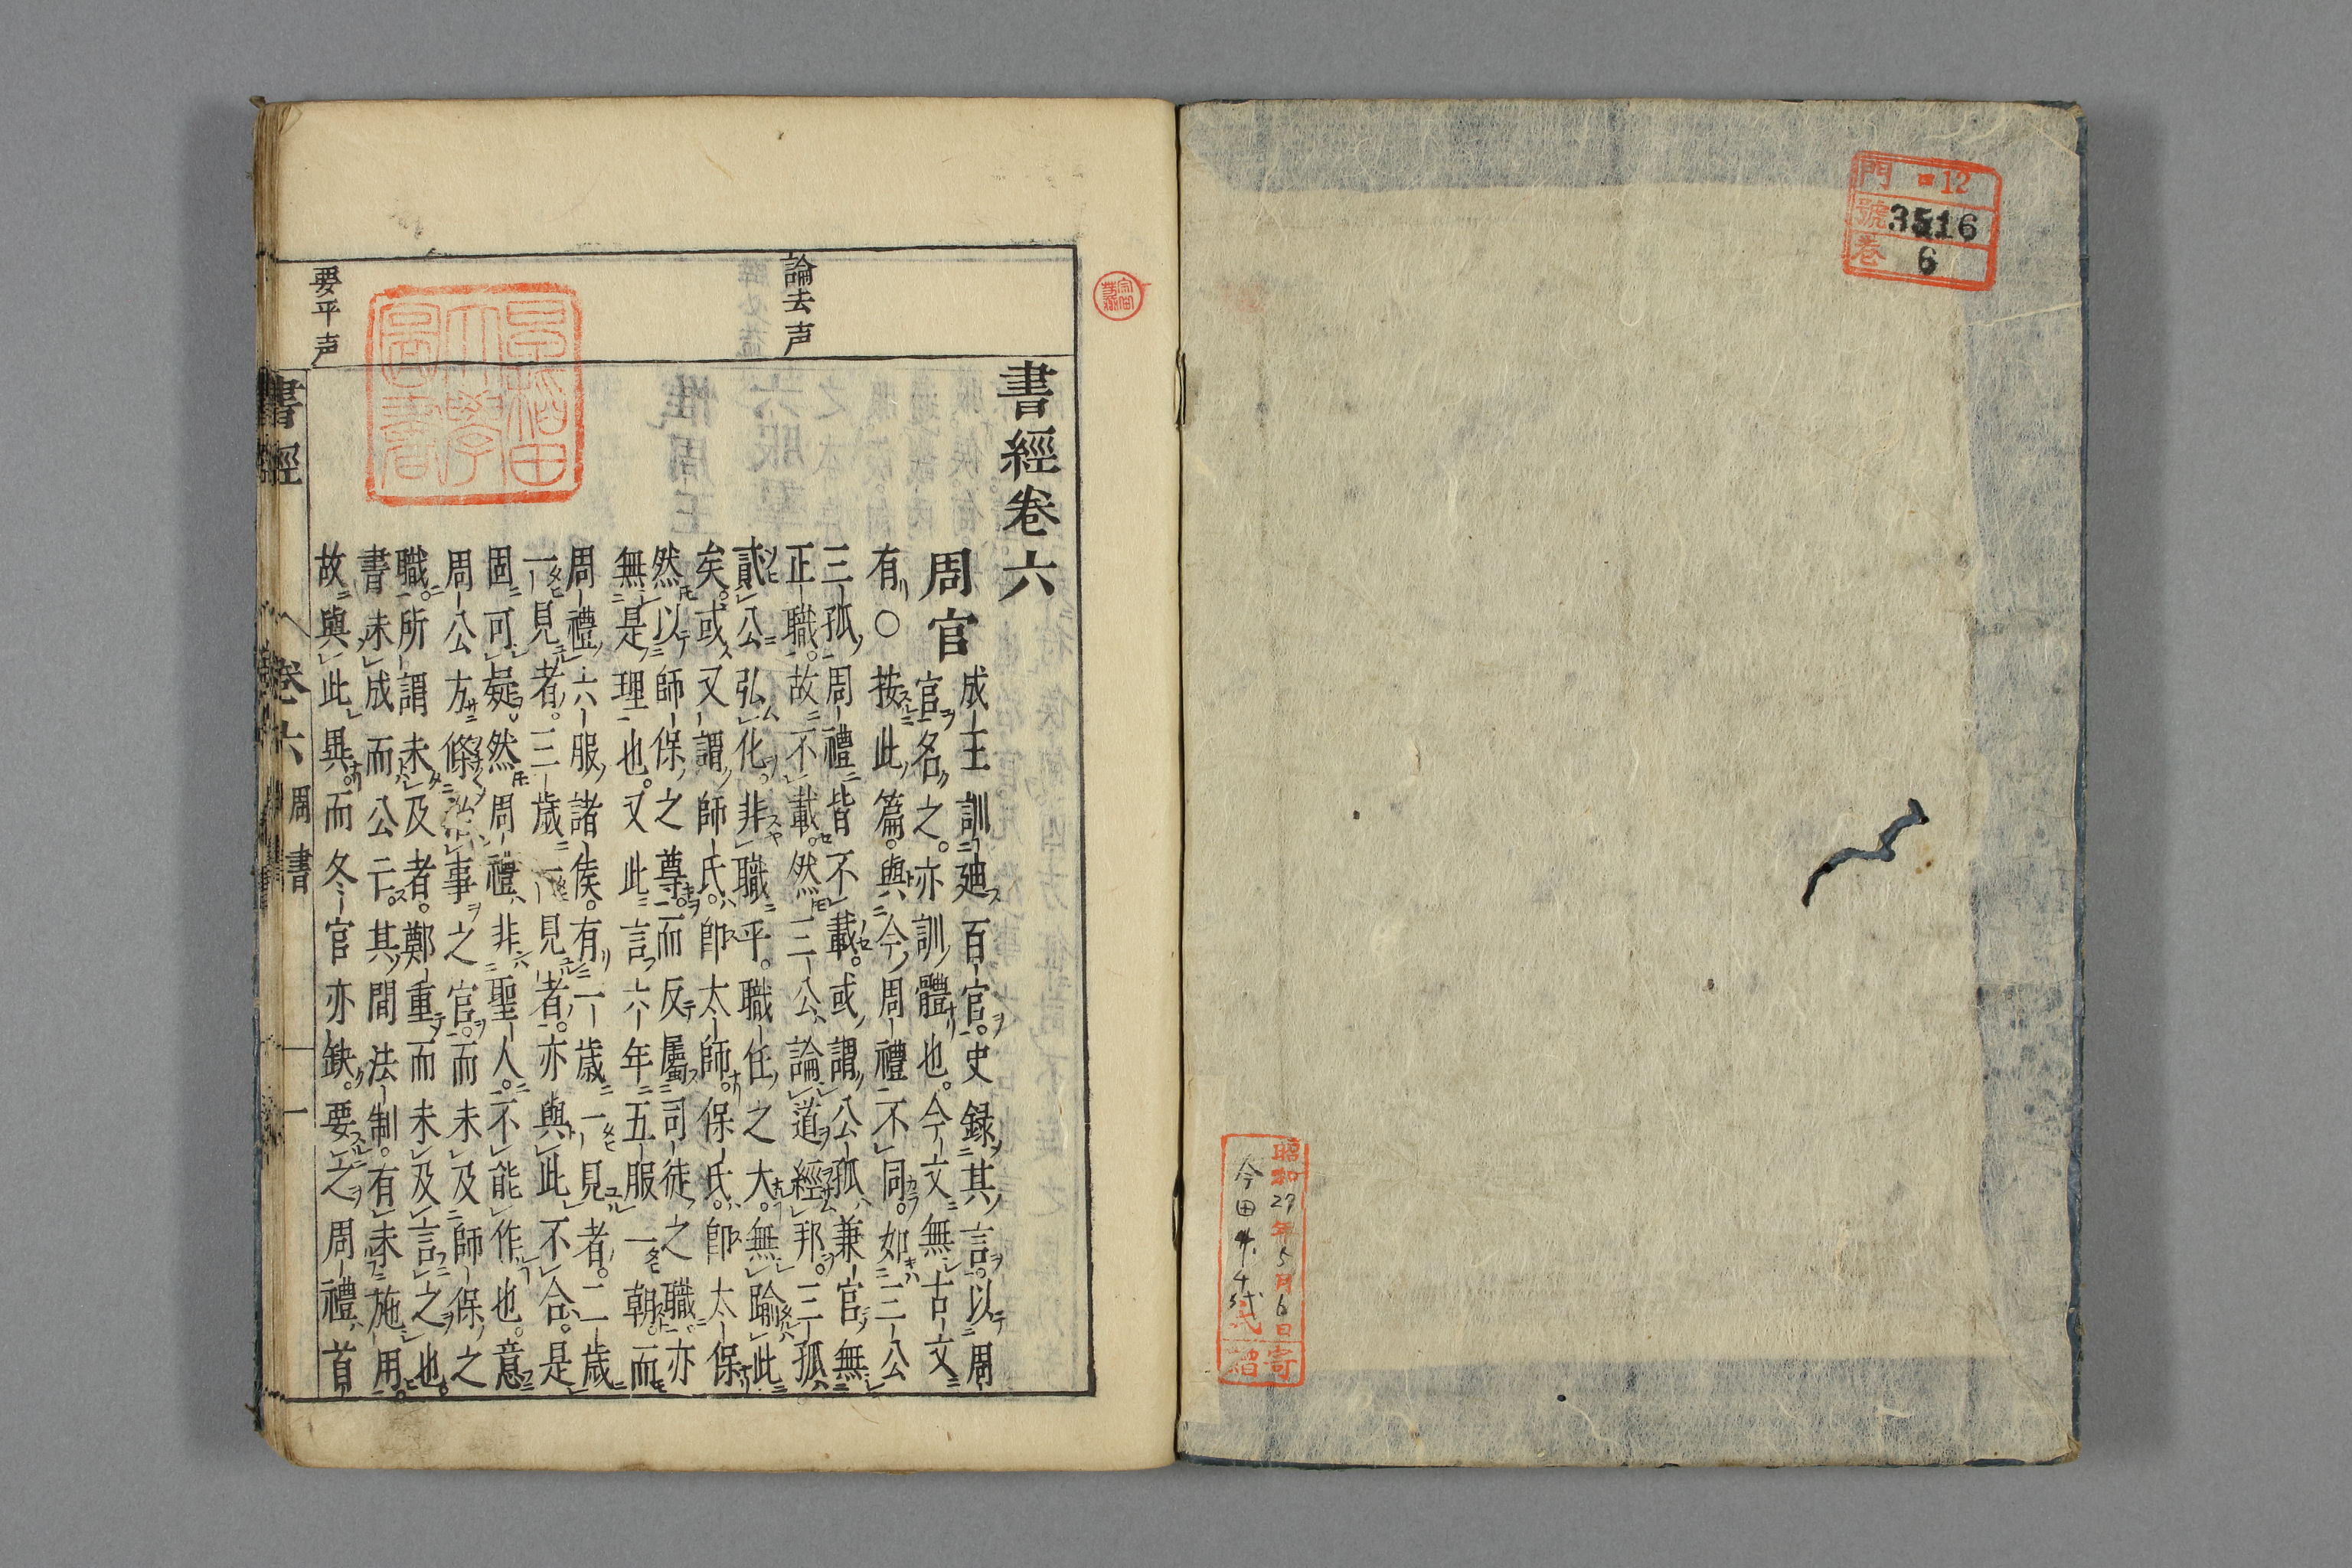 門 ロ12
號 3516
卷 6
昭和27年5月6日寄
今田
贈
論去声
要平声
早稲田
大學
圖書
書經卷六
周官 成王訓廸百官。史録其言。以周
官名之。亦訓體也。今文無古文
有○按此篇。與今周禮不同。如三公
三孤。周禮皆不載。或謂公孤兼官。無
正職。故不載。然三公論道經邦。三孤
貳公弘化。非職乎。職任之大。無踰此
矣。或又謂師氏。卽太師。保氏。卽太保
然以師保之尊。而反屬司徒之職。亦
無是理也。又此言六年五服一朝。而
周禮六服諸侯。有一歲一見者。二歲
一見者。三歲一見者。亦與此不合。是
固可疑。然周禮非聖人。不能作也。意
周公方條治事之官。而未及師保之
職。所謂未及者。鄭重而未及言之也。
書未成而公亡。其間法制。有未施用。
故與此異。而冬官亦缺。要之周禮首
書經 卷六 周書 一